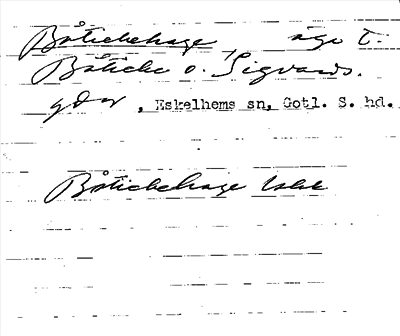 Båtickehage äga t.
Båticke o. Sigvards.
gdar, Eskelhems sn, Gotl. S. hd.
Båtickehage